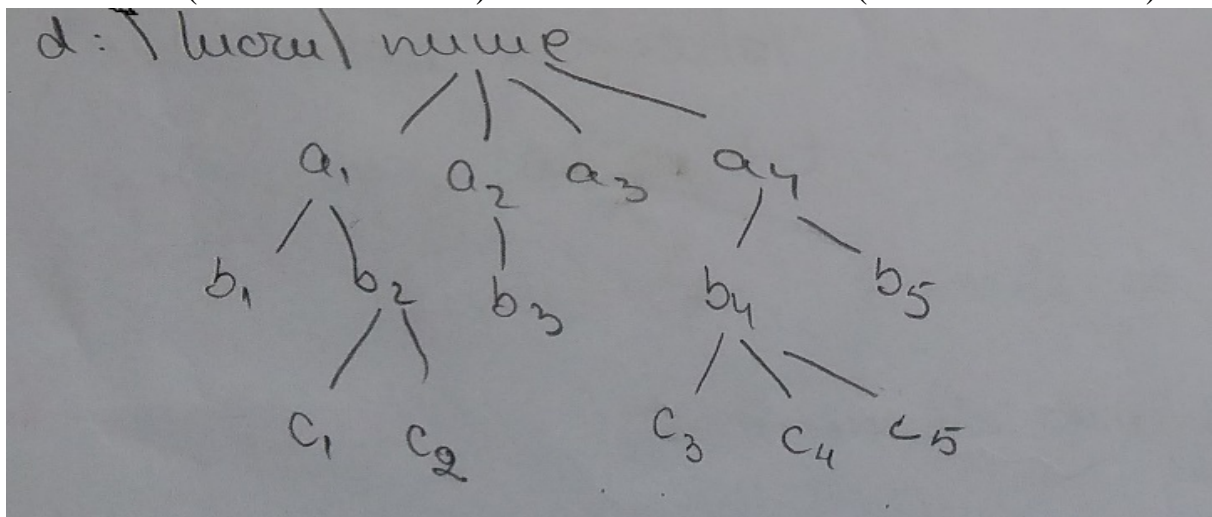 d:\lucru\nume
a1 a2 a3 a4
b1 b2 b3 b4 b5
c1 c2 c3 c4 c5